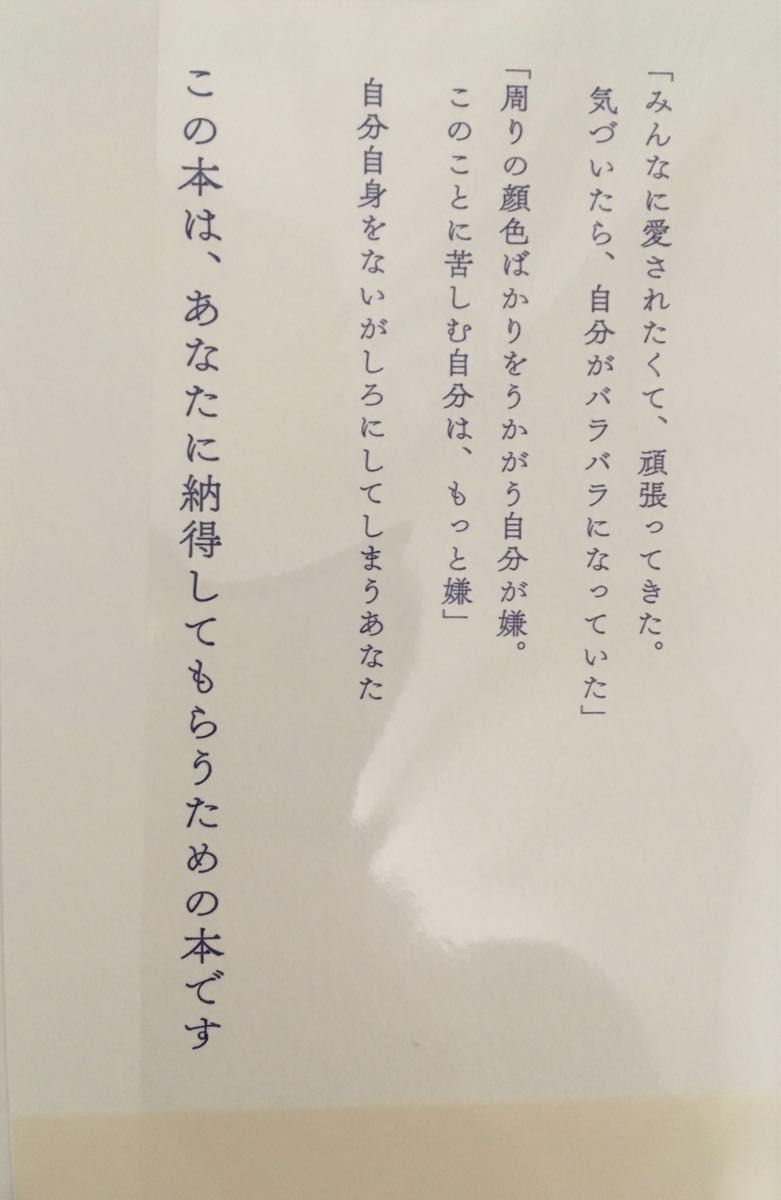 「みんなに愛されたくて、頑張ってきた。
気づいたら、自分がバラバラになっていた」
「周りの顔色ばかりをうかがう自分が嫌。
このことに苦しむ自分は、もっと嫌」
自分自身をないがしろにしてしまうあなた
この本は、あなたに納得してもらうための本です